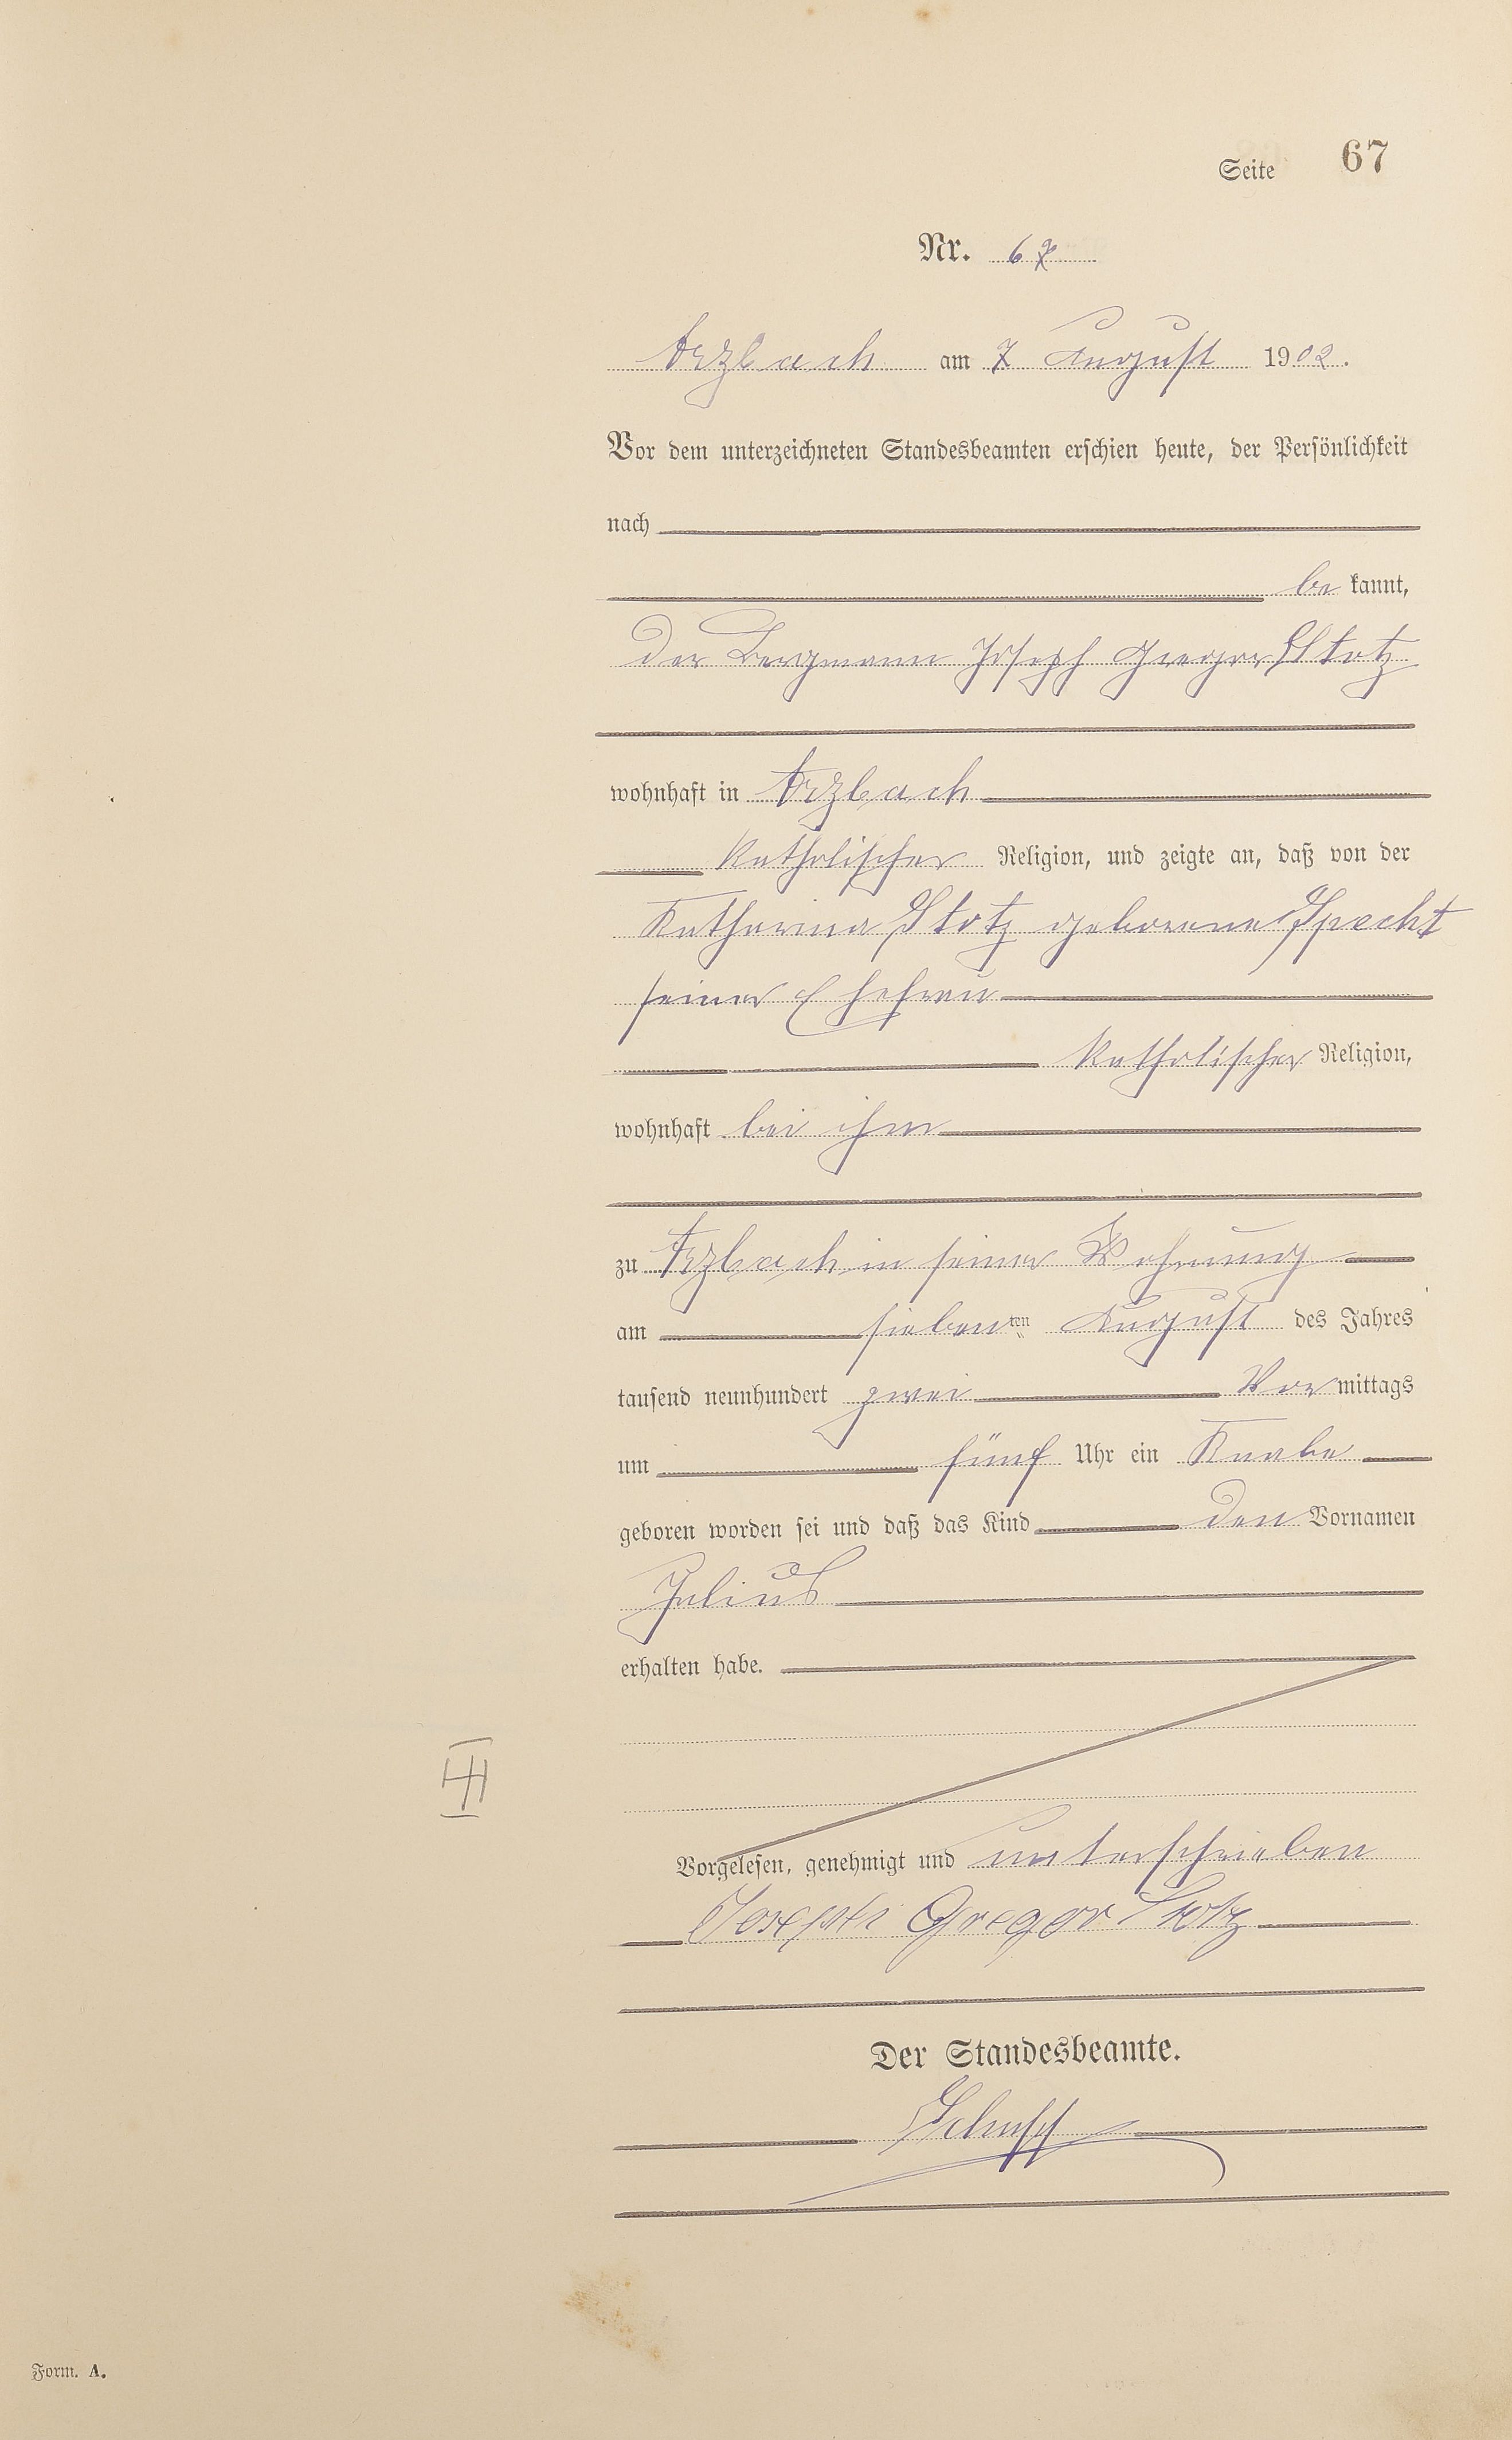 Seite 67
Nr. 67
Arzbach am 7 August 1902.
Vor dem unterzeichneten Standesbeamten erschien heute, der Persönlichkeit
nach
be kannt,
Der Bergmann Joseph Gregor Stotz
wohnhaft in Arzbach
katholischer Religion, und zeigte an, daß von der
Katharina Stotz geborene Specht
seiner Ehefrau
katholischer Religion,
wohnhaft bei ihm
zu Arzbach in seiner Wohnung
am siebenten August des Jahres
tausend neunhundert zwei Vormittags
um fünf Uhr ein Knabe
geboren worden sei und daß das Kind den Vornamen
Julius
erhalten habe.
Vorgelesen, genehmigt und unterschrieben
Joseph Gregor Stotz
Der Standesbeamte.
Form. A.